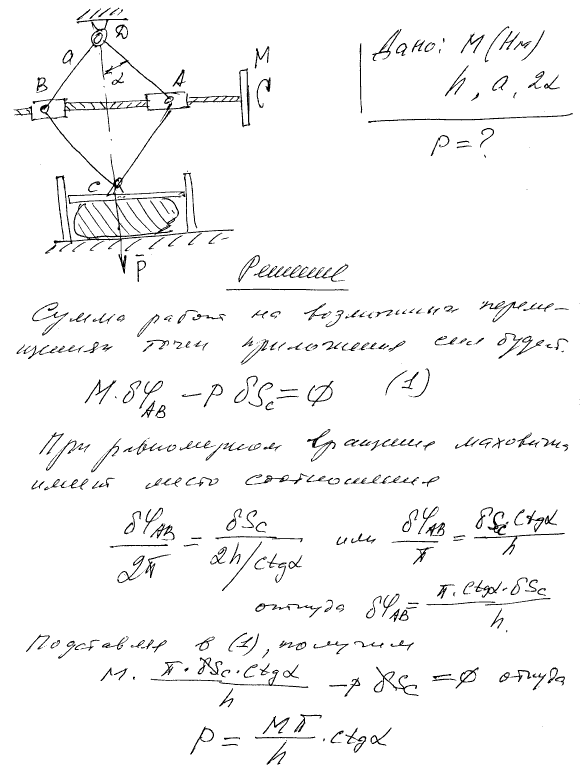 D
a
α
B
A
M
C
P̄
Дано: M (Нм)
h, a, 2α
P = ?
Решение
Сумма работ на возможных переме-
щениях точек приложения сил будет.
M·δφ_AB − P δS_C = 0 (1)
При равномерном вращение маховичка
имеет место соотношения
δφ_AB / 2π = δS_C / (2h/ctgα) или δφ_AB / π = δS_C·ctgα / h
откуда δφ_AB = π·ctgα·δS_C / h.
Подставляя в (1), получим
M· π·δS_C·ctgα / h − P δS_C = 0 откуда
P = Mπ / h · ctgα